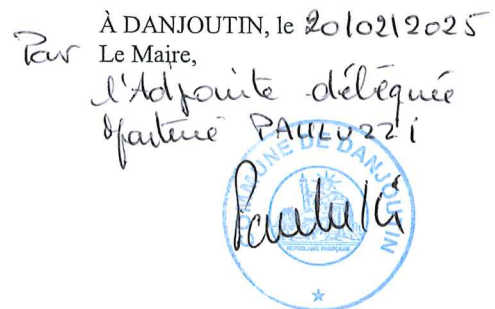 À DANJOUTIN, le 20/02/2025
Pour Le Maire,
l'Adjointe déléguée
Martine PAULUZZI
COMMUNE DE DANJOUTIN
RÉPUBLIQUE FRANÇAISE